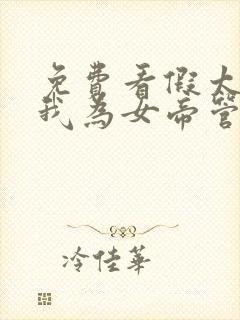 免費看假太
我為女帝管
冷佳華